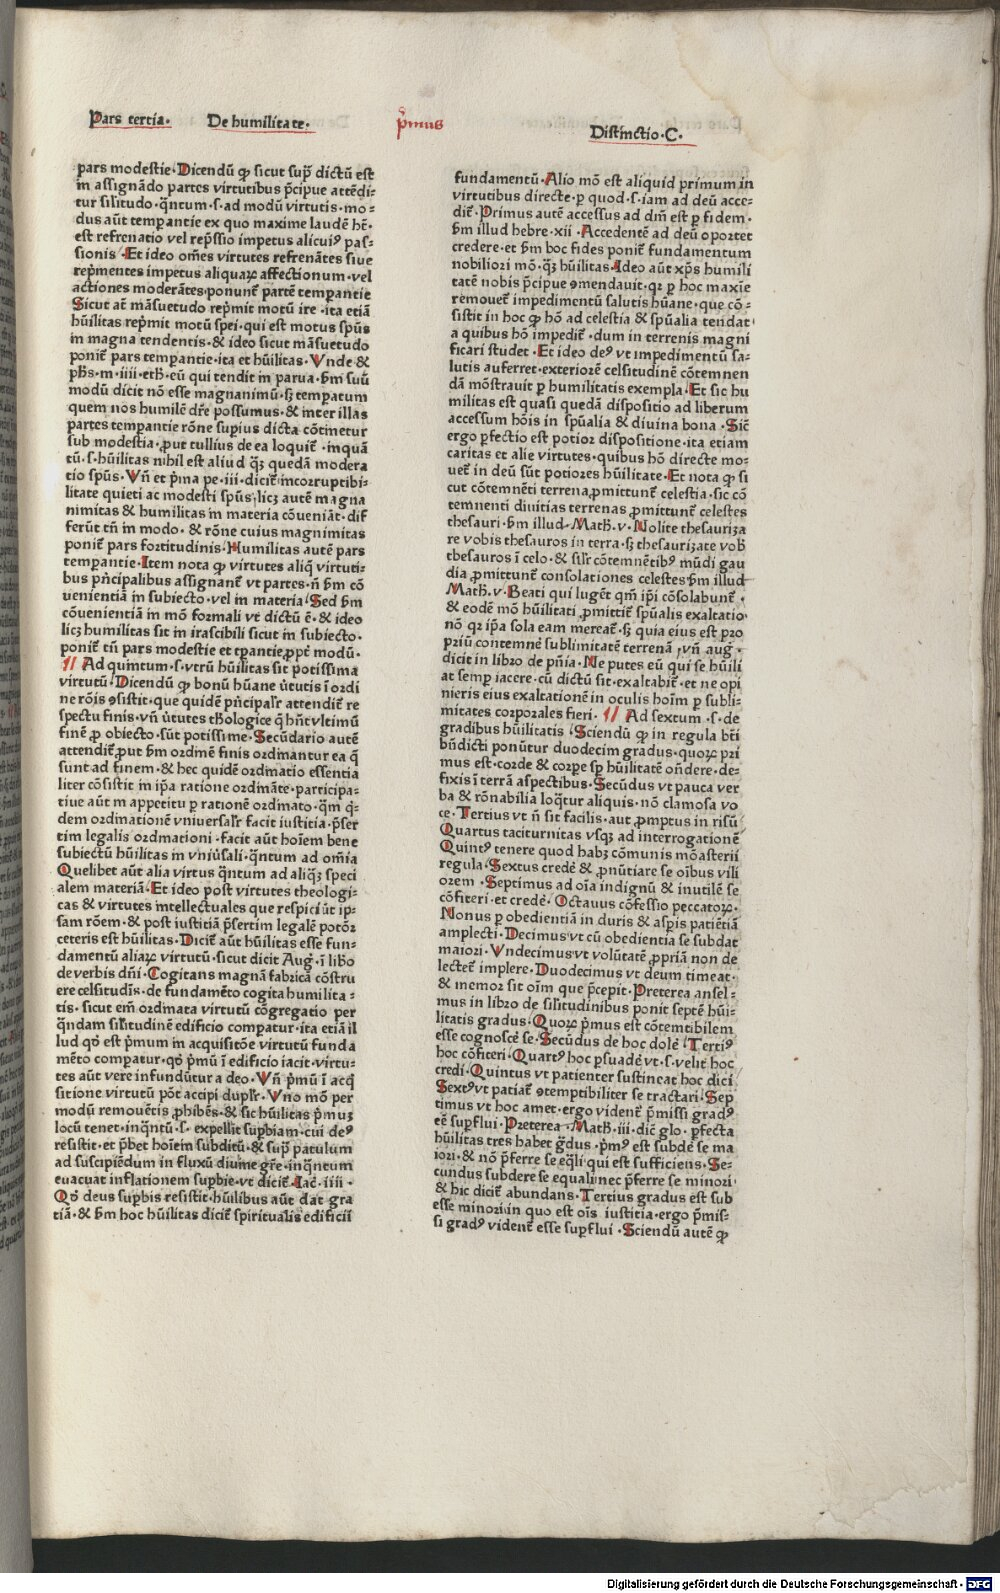 Pars tertia. De humilitate. p̃mus Distinctio.C.
pars modestie. Dicendũ ꝙ sicut sup̃ dictũ est
in assignãdo partes virtutibus p̃cipue attẽdi-
tur silitudo. q̃ntum .s. ad modũ virtutis. mo-
dus aũt temꝑantie ex quo maxime laudẽ hẽt.
est refrenatio vel rep̃ssio impetus alicuiꝰ pas-
sionis. Et ideo om̃es virtutes refrenãtes siue
rep̃mentes impetus aliquaꝝ affectionum. vel
actiones moderãtes. ponunt̃ partẽ temꝑantie
Sicut aũt mãsuetudo rep̃mit motũ ire. ita etiã
hũilitas rep̃mit motũ spei. qui est motus spũs
in magna tendentis. & ideo sicut mãsuetudo
ponit̃ pars temꝑantie. ita et hũilitas. Vnde &
ph̃s. m. iiii. eth̃. eũ qui tendit in parua. ẜm suũ
modũ dicit nõ esse magnanimũ. sꝫ temꝑatum
quem nos humilẽ dr̃e possumus. & inter illas
partes temꝑantie rõne suꝑius dicta cõtinetur
sub modestia. ꝓut tullius de ea loquit̃. inquã
tũ .s. hũilitas nihil est aliud q̃ꝫ quedã modera
tio spũs. Vñ et p̃ma pe. iii. dicit̃ incorruptibi-
litate quieti ac modesti spũs. licꝫ autẽ magna
nimitas & humilitas in materia cõueniãt. dif
ferũt tñ in modo. & rõne cuius magnimitas
ponit̃ pars fortitudinis. Humilitas autẽ pars
temꝑantie. Item nota ꝙ virtutes aliq̃ virtuti-
bus pñcipalibus assignant̃ vt partes. ñ ẜm cõ
uenientiã in subiecto. vel in materia. Sed ẜm
cõuenientiã in mõ formali vt dictũ ẽ. & ideo
licꝫ humilitas sit in irascibili sicut in subiecto.
ponit̃ tñ pars modestie et tꝑantie. ꝓpt̃ modũ.
¶ Ad quintum .s. vtrũ hũilitas sit potissima
virtutũ. Dicendũ ꝙ bonũ hũane v̓tutis ĩ ordi
ne rõis ꝯsistit. que quidẽ pñcipalr̃ attendit̃ re
spectu finis. vñ v̓tutes theologice q̃ hñt vltimũ
finẽ ꝓ obiecto. sũt potissime. Secũdario autẽ
attendit̃ ꝓut ẜm ordinẽ finis ordinantur ea q̃
sunt ad finem. & hec quidẽ ordinatio essentia
liter cõsistit in ip̃a ratione ordinãte. participa-
tiue aũt in appetitu ꝑ rationẽ ordinato. q̃m q̃-
dem ordinationẽ vniuersalr̃ facit iustitia. p̃ser
tim legalis ordinationi. facit aũt hoiem bene
subiectũ hũilitas in vniũsali. q̃ntum ad om̃ia
Quelibet aũt alia virtus q̃ntum ad aliq̃ꝫ speci
alem materiã. Et ideo post virtutes theologi-
cas & virtutes intellectuales que respiciũt ip-
sam rõem. & post iustitiã p̃sertim legalẽ potõr
ceteris est hũilitas. Dicit̃ aũt hũilitas esse fun-
damentũ aliaꝝ virtutũ. sicut dicit Aug̃. ĩ lib̃o
de verbis dñi. Cogitans magnã fabricã cõstru
ere celsitudĩs. de fundamẽto cogita humilita-
tis. sicut em̃ ordinata virtutũ cõgregatio per
q̃ndam silitudinẽ edificio comparur. ita etiã il
lud qd̓ est p̃mum in acquisitõe virtutũ funda
mẽto comparur. qd̓ p̃mũ ĩ edificio iacit̃. virtu-
tes aũt vere infundũtur a deo. Vñ p̃mũ ĩ acq̃
sitione virtutũ põt accipi duplr̃. Vno mõ per
modũ remouẽtis ꝓhibẽs. & sic hũilitas p̃muꝫ
locũ tenet. inq̃ntũ .s. expellit suꝑbiam. cui deꝰ
resistit. et p̃bet hoiem subditũ & sup̃ patulum
ad suscipiẽdum in fluxũ diuine gr̃e. inq̃ntum
euacuat inflationem suꝑbie. vt dicit̃. Iac̃. iiii.
Qd̓ deus suꝑbis resistit. hũilibus aũt dat gra
tiã. & ẜm hoc hũilitas dicit̃ spiritualis edificii
fundamentũ. Alio mõ est aliquid primum in
virtutibus directe. ꝑ quod .s. iam ad deũ acce-
dit̃. Primus autẽ accessus ad dm̃ est ꝑ fidem.
ẜm illud hebre. xii. Accedentẽ ad deũ oportet
credere. et ẜm hoc fides ponit̃ fundamentum
nobiliori mõ. q̃ꝫ hũilitas. Ideo aũt xp̃s humili
tatẽ nobis p̃cipue ꝯmendauit. qꝛ ꝑ hoc maxie
remouet̃ impedimentũ salutis hũane. que cõ-
sistit in hoc ꝙ hõ ad celestia & spũalia tendat
a quibus hõ impedit̃. dum in terrenis magni
ficari studet. Et ideo deꝰ vt impedimentũ sa-
lutis auferret. exteriorẽ celsitudinẽ cõtemnen
dã mõstrauit ꝑ humilitatis exempla. Et sic hu
militas est quasi quedã dispositio ad liberum
accessum hõis in spũalia & diuina bona. Sic̃
ergo ꝑfectio est potior dispositione. ita etiam
caritas et alie virtutes. quibus hõ directe mo-
uet̃ in deũ sũt potiores hũilitate. Et nota ꝙ si
cut cõtemnẽti terrena ꝓmittunt̃ celestia. sic cõ
temnenti diuitias terrenas ꝓmittunt̃ celestes
thesauri. ẜm illud. Math̃. v. Nolite thesauriza
re vobis thesauros in terra. sꝫ thesaurizate vob̃
thesauros ĩ celo. & silr̃ cõtemnẽtibꝰ mũdi gau
dia ꝓmittunt̃ consolationes celestes. ẜm illud
Math̃. v. Beati qui lugẽt qm̃ ip̃i cõsolabunt̃.
& eodẽ mõ hũilitati ꝓmittit̃ spũalis exaltatio
nõ qꝛ ip̃a sola eam mereat̃. sꝫ quia eius est pro
priũ contemnẽ sublimitatẽ terrenã. vñ aug̃.
dicit in libro de pñia. Ne putes eũ qui se hũili
at semꝑ iacere. cũ dictũ sit. exaltabit̃. et ne opi
nieris eius exaltationẽ in oculis hoĩm ꝑ subli-
mitates corporales fieri. ¶ Ad sextum .s. de
gradibus hũilitatis. Sciendũ ꝙ in regula bt̃i
bñdicti ponũtur duodecim gradus. quoꝝ pri
mus est. corde & corpe sꝑ hũilitatẽ oñdere. de-
fixis ĩ terrã aspectibus. Secũdus vt pauca ver
ba & rõnabilia loq̃tur aliquis. nõ clamosa vo
ce. Tertius vt ñ sit facilis. aut ꝓmptus in risũ
Quartus taciturnitas vsqꝫ ad interrogationẽ
Quintꝰ tenere quod habꝫ cõmunis mõasterii
regula. Sextus credẽ & ꝓnũtiare se oĩbus vili
orem. Septimus ad oĩa indignũ & inutilẽ se
cõfiteri. et credẽ. Octauus cõfessio peccatoꝝ.
Nonus ꝑ obediẽntiã in duris & asp̃is patiẽtiã
amplecti. Decimus vt cũ obedientia se subdat
maiori. Vndecimus vt volũtatẽ ꝓpriã non de
lectet̃ implere. Duodecimus vt deum timeat.
& memor sit oĩm que p̃cepit. Preterea ansel-
mus in libro de silitudinibus ponit septẽ hũi-
litatis gradus. Quoꝝ p̃mus est cõtemtibilem
esse cognoscẽ se. Secũdus de hoc dolẽ. Tertiꝰ
hoc cõfiteri. Quartꝰ hoc ꝑsuadẽ vt .s. velit hoc
credi. Quintus vt patienter sustineat hoc dici
Sextꝰ vt patiat̃ ꝯtemptibiliter se tractari. Sep
timus vt hoc amet. ergo vident̃ p̃missi gradꝰ
eẽ suꝑflui. Preterea. Math̃. iii. dic̃ glo. ꝑfecta
hũilitas tres habet g̃dus. p̃mꝰ est subdẽ se ma
iori. & nõ p̃ferre se eq̃li. qui est sufficiens. Se-
cundus subdere se equali. nec p̃ferre se minori
& hic dicit̃ abundans. Tertius gradus est sub
esse minori. in quo est oĩs iustitia. ergo p̃mis-
si gradꝰ vident̃ esse suꝑflui. Sciendũ autẽ ꝙ
Digitalisierung gefördert durch die Deutsche Forschungsgemeinschaft - DFG